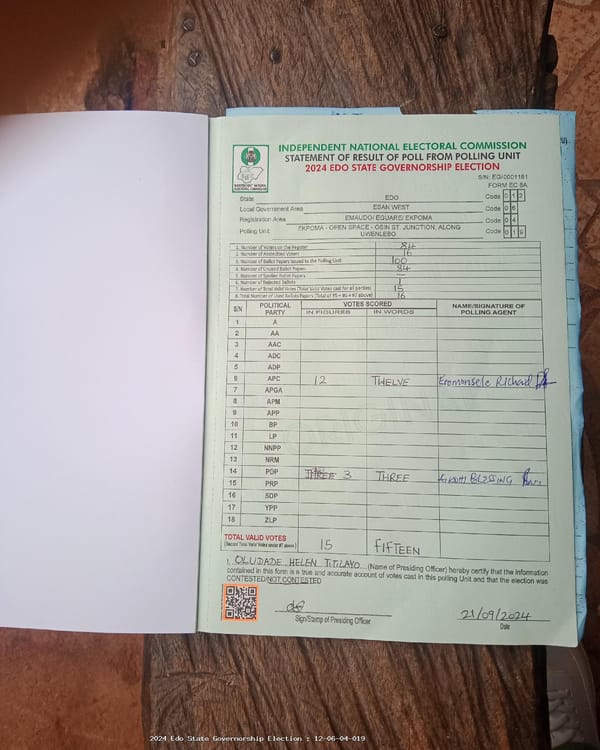 INDEPENDENT NATIONAL ELECTORAL COMMISSION
STATEMENT OF RESULT OF POLL FROM POLLING UNIT
2024 EDO STATE GOVERNORSHIP ELECTION
S/N: EG/0001181
FORM EC 8A
State EDO Code 0 1 2
Local Government Area ESAN WEST Code 0 6
Registration Area EMAUDO/ EGUARE/ EKPOMA Code 0 4
Polling Unit EKPOMA - OPEN SPACE - OSIN ST. JUNCTION, ALONG UWENLEBO Code 0 1 9
1. Number of Voters on the Register 84
2. Number of Accredited Voters 16
3. Number of Ballot Papers Issued to the Polling Unit 100
4. Number of Unused Ballot Papers 84
5. Number of Spoiled Ballot Papers
6. Number of Rejected Ballots 1
7. Number of Total Valid Votes (Total Valid Votes cast for all parties) 15
8. Total Number of Used Ballots Papers (Total of #5 + #6 + #7 above) 16
S/N POLITICAL PARTY VOTES SCORED NAME/SIGNATURE OF POLLING AGENT
IN FIGURES IN WORDS
1 A
2 AA
3 AAC
4 ADC
5 ADP
6 APC 12 TWELVE Eromonsele Richard
7 APGA
8 APM
9 APP
10 BP
11 LP
12 NNPP
13 NRM
14 PDP THREE 3 THREE BLESSING
15 PRP
16 SDP
17 YPP
18 ZLP
TOTAL VALID VOTES 15 FIFTEEN
(Record Total Valid Votes under #7 above)
I, OLUDADE HELEN TITILAYO (Name of Presiding Officer) hereby certify that the information
contained in this form is a true and accurate account of votes cast in this polling Unit and that the election was
CONTESTED/NOT CONTESTED
Sign/Stamp of Presiding Officer
21/09/2024
Date
2024 Edo State Governorship Election : 12-06-04-019